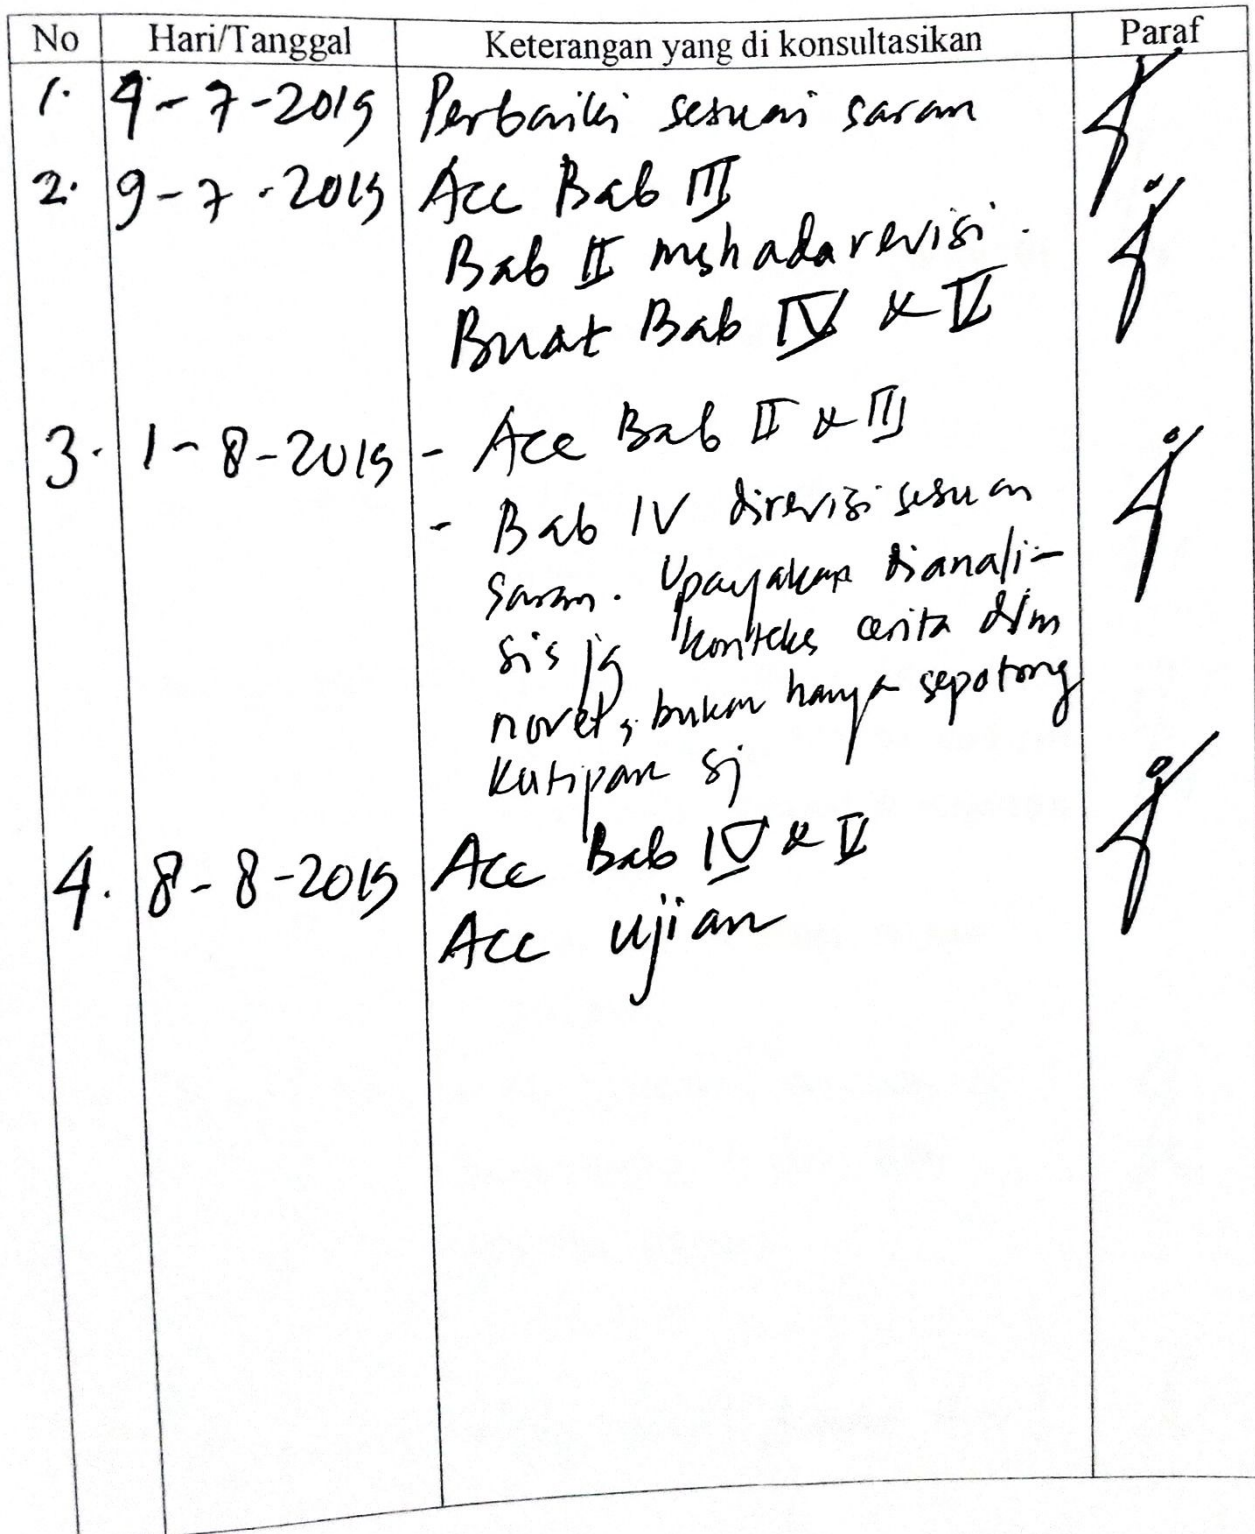 No Hari/Tanggal Keterangan yang di konsultasikan Paraf
1. 4-7-2019 Perbaiki sesuai saran
2. 9-7-2019 Acc Bab III
Bab II msh ada revisi.
Buat Bab IV & V
3. 1-8-2019 - Acc Bab II & III
- Bab IV direvisi sesuai
saran. Upayakan dianali-
sis jg konteks cerita dlm
novel, bukan hanya sepotong
kutipan sj
4. 8-8-2019 Acc Bab IV & V
Acc ujian